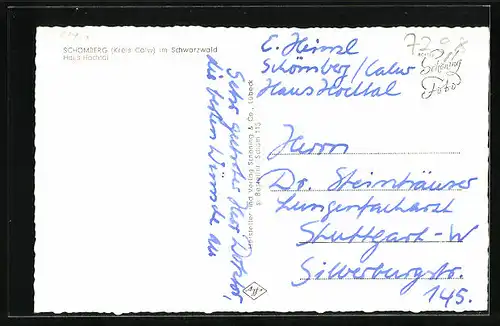 SCHÖMBERG (Kreis Calw) im Schwarzwald
Haus Hochtal
E. Heinzl
Schömberg/Calw
Haus Hochtal
7298
Schöning
Foto
Sehr geehrter Herr Doktor,
die besten Wünsche an
Hersteller und Verlag Schöning & Co., Lübeck
Herrn
Dr. Steinhäuser
Lungenfacharzt
Stuttgart-W
Silberburgstr.
145.